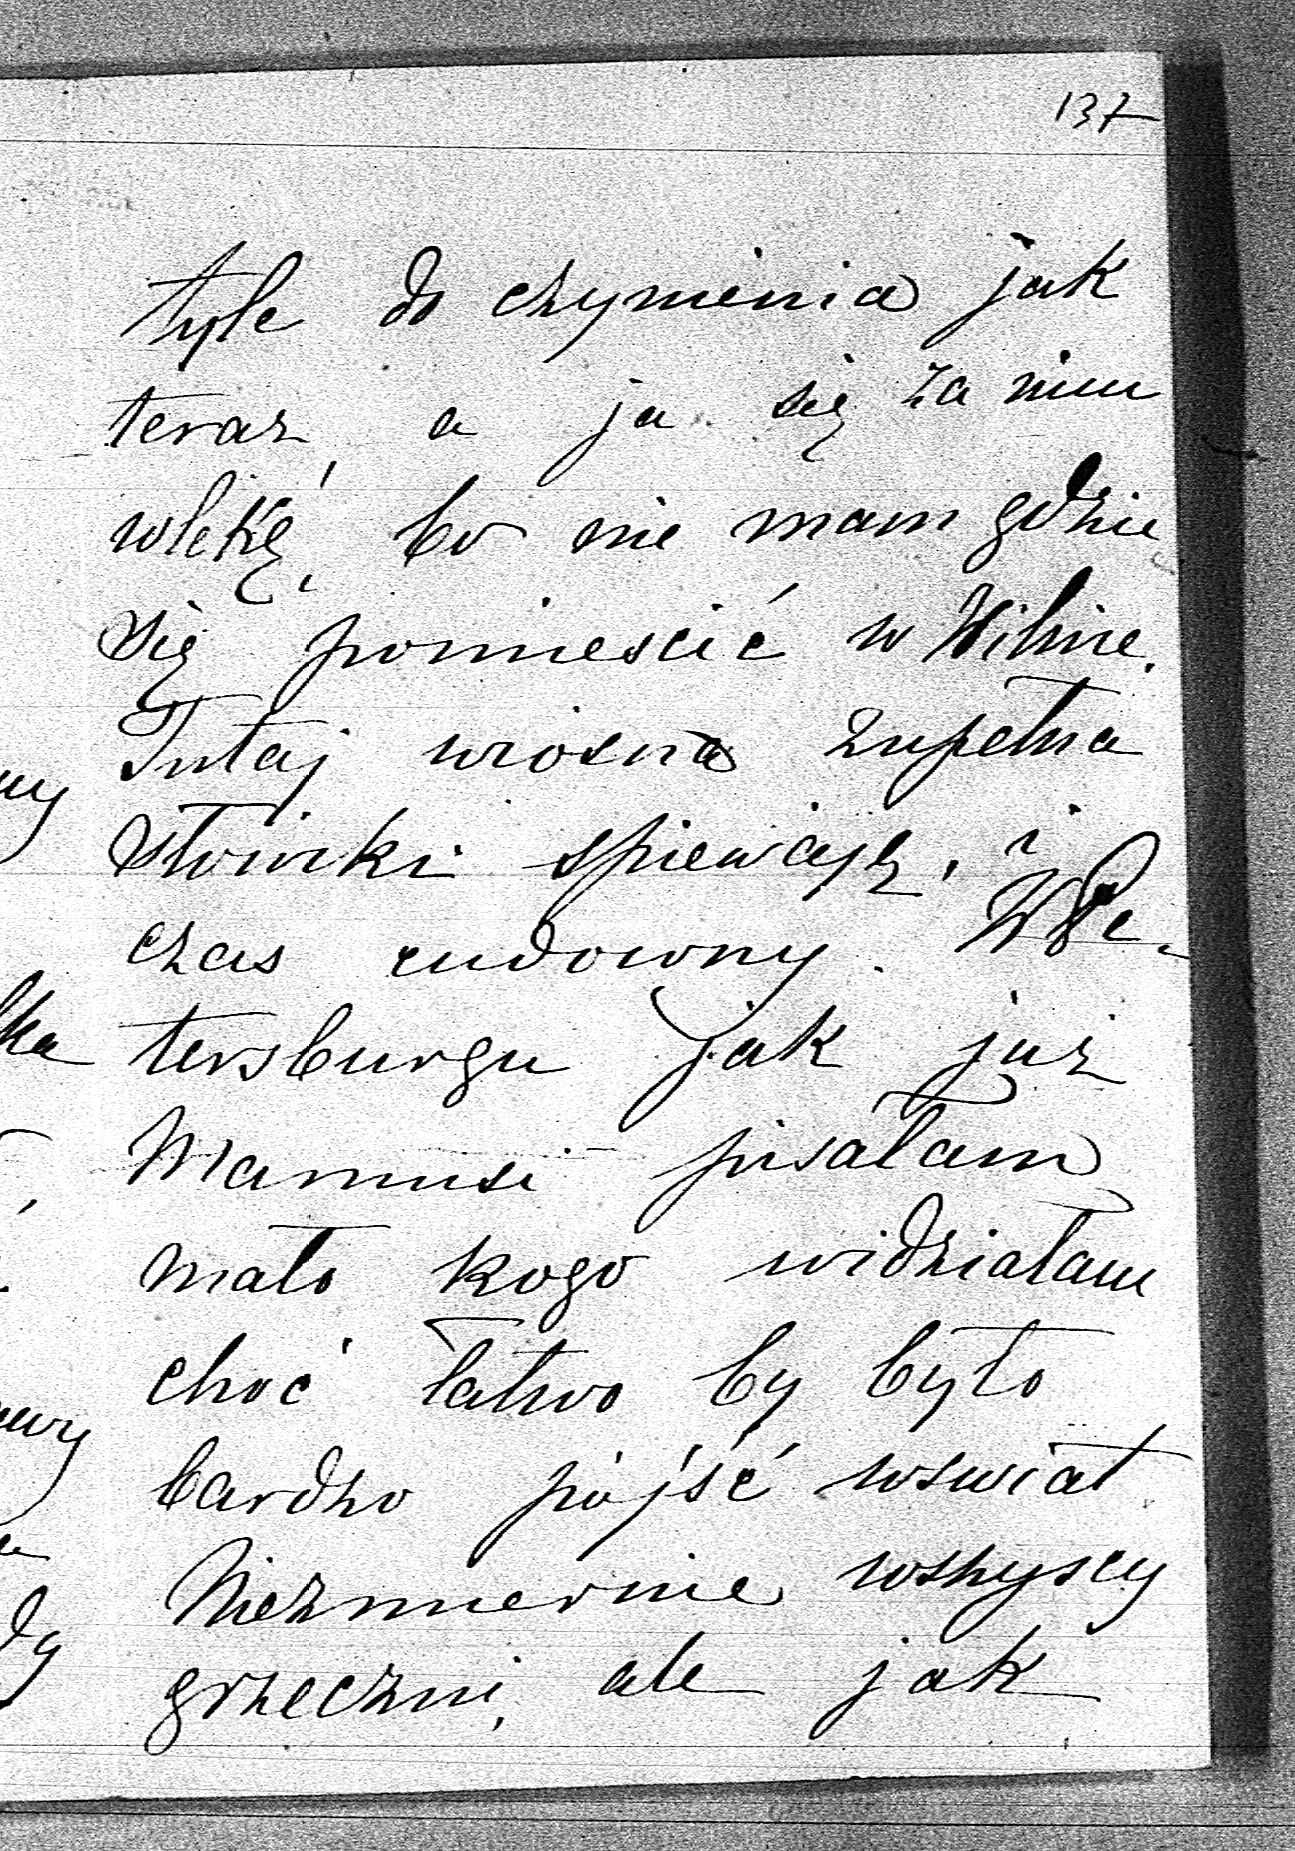 137
tyle do czynienia jak
teraz, a ja się za nim
wlekę, bo nie mam gdzie
się pomieścić w Wilnie.
Tutaj wiosna zupełna
słowiki spiewają, i
czas cudowny. W Pe-
tersburgu jak już
Mamusi pisałam
mało kogo widziałam
choć łatwo by było
bardzo pójść wswiat
Niezmiernie wszyscy
grzeczni, ale jak